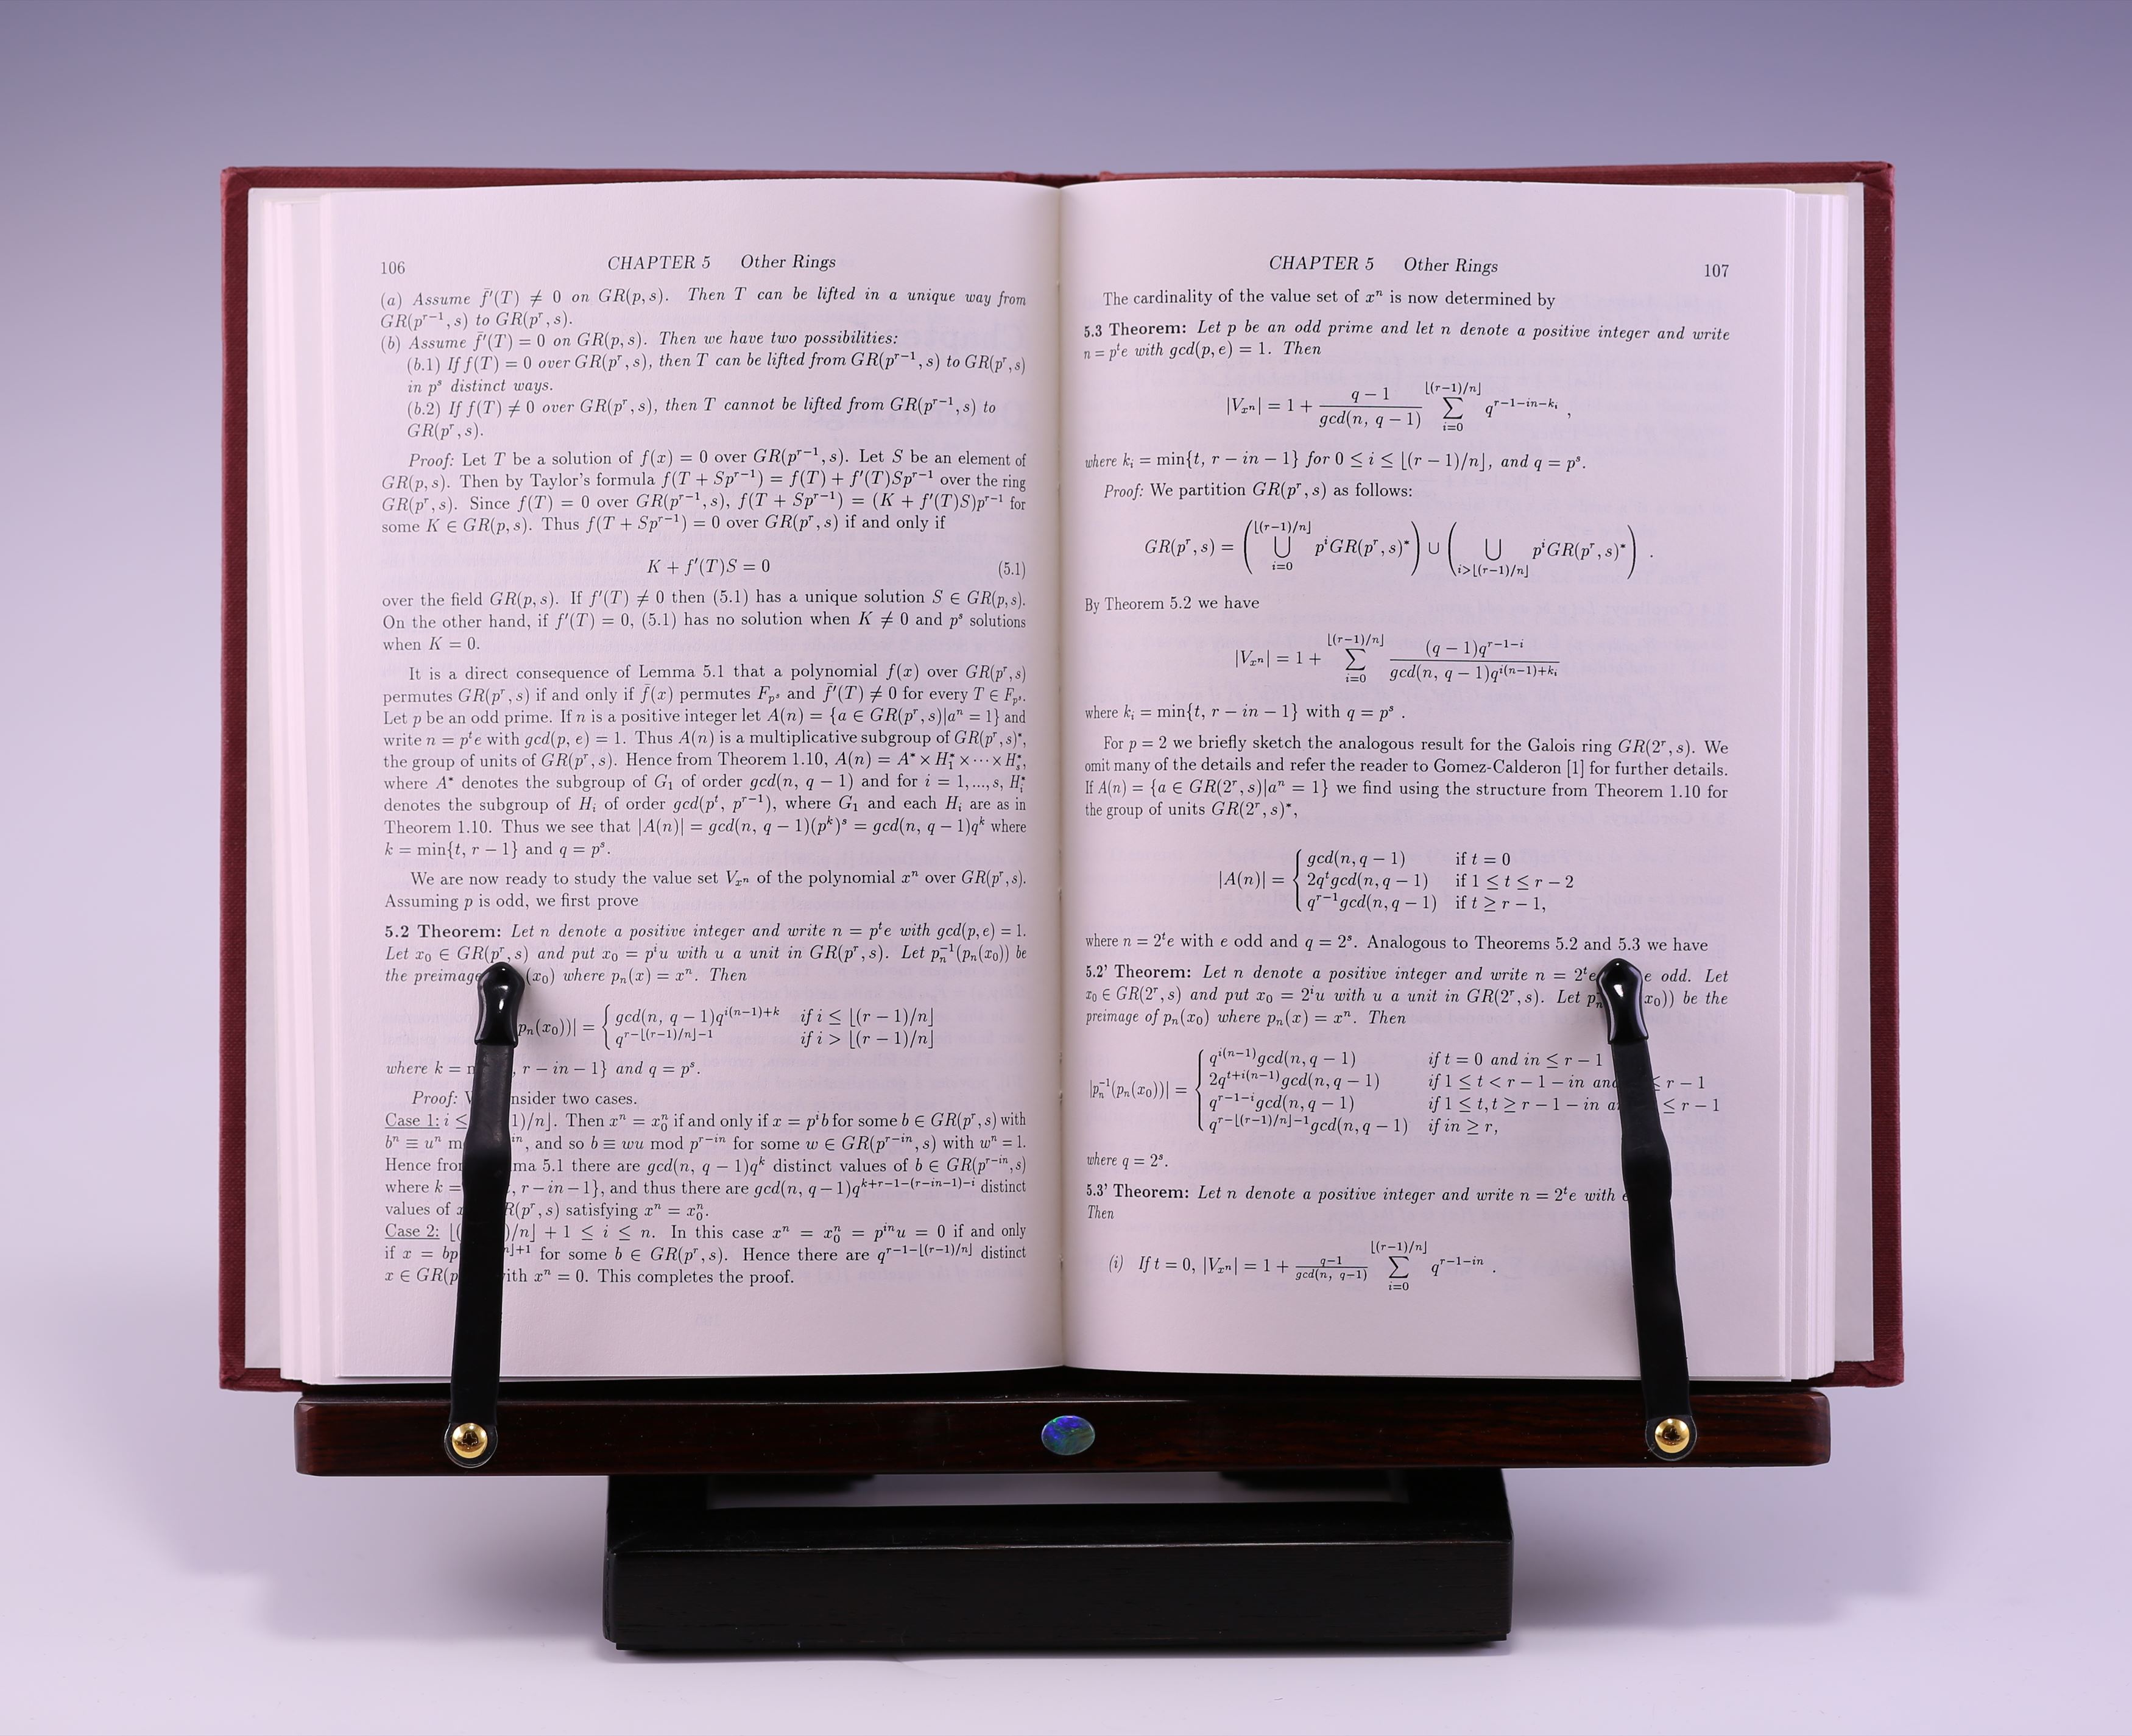 106 CHAPTER 5 Other Rings
(a) Assume f̄′(T) ≠ 0 on GR(p, s). Then T can be lifted in a unique way from
GR(pʳ⁻¹, s) to GR(pʳ, s).
(b) Assume f̄′(T) = 0 on GR(p, s). Then we have two possibilities:
(b.1) If f(T) = 0 over GR(pʳ, s), then T can be lifted from GR(pʳ⁻¹, s) to GR(pʳ, s)
in pˢ distinct ways.
(b.2) If f(T) ≠ 0 over GR(pʳ, s), then T cannot be lifted from GR(pʳ⁻¹, s) to
GR(pʳ, s).
Proof: Let T be a solution of f(x) = 0 over GR(pʳ⁻¹, s). Let S be an element of
GR(p, s). Then by Taylor's formula f(T + Spʳ⁻¹) = f(T) + f′(T)Spʳ⁻¹ over the ring
GR(pʳ, s). Since f(T) = 0 over GR(pʳ⁻¹, s), f(T + Spʳ⁻¹) = (K + f′(T)S)pʳ⁻¹ for
some K ∈ GR(p, s). Thus f(T + Spʳ⁻¹) = 0 over GR(pʳ, s) if and only if
K + f′(T)S = 0 (5.1)
over the field GR(p, s). If f′(T) ≠ 0 then (5.1) has a unique solution S ∈ GR(p, s).
On the other hand, if f′(T) = 0, (5.1) has no solution when K ≠ 0 and pˢ solutions
when K = 0.
It is a direct consequence of Lemma 5.1 that a polynomial f(x) over GR(pʳ, s)
permutes GR(pʳ, s) if and only if f̄(x) permutes F_{pˢ} and f̄′(T) ≠ 0 for every T ∈ F_{pˢ}.
Let p be an odd prime. If n is a positive integer let A(n) = {a ∈ GR(pʳ, s)|aⁿ = 1} and
write n = pᵗe with gcd(p, e) = 1. Thus A(n) is a multiplicative subgroup of GR(pʳ, s)*,
the group of units of GR(pʳ, s). Hence from Theorem 1.10, A(n) = A* × H₁* × ··· × Hₛ*,
where A* denotes the subgroup of G₁ of order gcd(n, q − 1) and for i = 1,...,s, Hᵢ*
denotes the subgroup of Hᵢ of order gcd(pᵗ, pʳ⁻¹), where G₁ and each Hᵢ are as in
Theorem 1.10. Thus we see that |A(n)| = gcd(n, q − 1)(pᵏ)ˢ = gcd(n, q − 1)qᵏ where
k = min{t, r − 1} and q = pˢ.
We are now ready to study the value set V_{xⁿ} of the polynomial xⁿ over GR(pʳ, s).
Assuming p is odd, we first prove
5.2 Theorem: Let n denote a positive integer and write n = pᵗe with gcd(p, e) = 1.
Let x₀ ∈ GR(pʳ, s) and put x₀ = pⁱu with u a unit in GR(pʳ, s). Let pₙ⁻¹(pₙ(x₀)) be
the preimage (x₀) where pₙ(x) = xⁿ. Then
pₙ(x₀))| = { gcd(n, q − 1)q^{i(n−1)+k} if i ≤ ⌊(r − 1)/n⌋
q^{r−⌊(r−1)/n⌋−1} if i > ⌊(r − 1)/n⌋
where k = , r − in − 1} and q = pˢ.
Proof: nsider two cases.
Case 1: i ≤ 1)/n⌋. Then xⁿ = x₀ⁿ if and only if x = pⁱb for some b ∈ GR(pʳ, s) with
bⁿ ≡ uⁿ m in, and so b ≡ wu mod p^{r−in} for some w ∈ GR(p^{r−in}, s) with wⁿ = 1.
Hence fro ma 5.1 there are gcd(n, q − 1)qᵏ distinct values of b ∈ GR(p^{r−in}, s)
where k = , r − in − 1}, and thus there are gcd(n, q − 1)q^{k+r−1−(r−in−1)−i} distinct
values of R(pʳ, s) satisfying xⁿ = x₀ⁿ.
Case 2: ⌊( )/n⌋ + 1 ≤ i ≤ n. In this case xⁿ = x₀ⁿ = p^{in}u = 0 if and only
if x = bp n⌋+1 for some b ∈ GR(pʳ, s). Hence there are q^{r−1−⌊(r−1)/n⌋} distinct
x ∈ GR(p ith xⁿ = 0. This completes the proof.
CHAPTER 5 Other Rings 107
The cardinality of the value set of xⁿ is now determined by
5.3 Theorem: Let p be an odd prime and let n denote a positive integer and write
n = pᵗe with gcd(p, e) = 1. Then
|V_{xⁿ}| = 1 + (q − 1)/gcd(n, q − 1) ∑_{i=0}^{⌊(r−1)/n⌋} q^{r−1−in−kᵢ} ,
where kᵢ = min{t, r − in − 1} for 0 ≤ i ≤ ⌊(r − 1)/n⌋, and q = pˢ.
Proof: We partition GR(pʳ, s) as follows:
GR(pʳ, s) = (⋃_{i=0}^{⌊(r−1)/n⌋} pⁱGR(pʳ, s)*) ∪ (⋃_{i>⌊(r−1)/n⌋} pⁱGR(pʳ, s)*) .
By Theorem 5.2 we have
|V_{xⁿ}| = 1 + ∑_{i=0}^{⌊(r−1)/n⌋} (q − 1)q^{r−1−i} / gcd(n, q − 1)q^{i(n−1)+kᵢ}
where kᵢ = min{t, r − in − 1} with q = pˢ .
For p = 2 we briefly sketch the analogous result for the Galois ring GR(2ʳ, s). We
omit many of the details and refer the reader to Gomez-Calderon [1] for further details.
If A(n) = {a ∈ GR(2ʳ, s)|aⁿ = 1} we find using the structure from Theorem 1.10 for
the group of units GR(2ʳ, s)*,
|A(n)| = { gcd(n, q − 1) if t = 0
2qᵗgcd(n, q − 1) if 1 ≤ t ≤ r − 2
qʳ⁻¹gcd(n, q − 1) if t ≥ r − 1,
where n = 2ᵗe with e odd and q = 2ˢ. Analogous to Theorems 5.2 and 5.3 we have
5.2' Theorem: Let n denote a positive integer and write n = 2ᵗe e odd. Let
x₀ ∈ GR(2ʳ, s) and put x₀ = 2ⁱu with u a unit in GR(2ʳ, s). Let pₙ x₀)) be the
preimage of pₙ(x₀) where pₙ(x) = xⁿ. Then
|pₙ⁻¹(pₙ(x₀))| = { q^{i(n−1)}gcd(n, q − 1) if t = 0 and in ≤ r − 1
2q^{t+i(n−1)}gcd(n, q − 1) if 1 ≤ t < r − 1 − in and ≤ r − 1
q^{r−1−i}gcd(n, q − 1) if 1 ≤ t, t ≥ r − 1 − in a ≤ r − 1
q^{r−⌊(r−1)/n⌋−1}gcd(n, q − 1) if in ≥ r,
where q = 2ˢ.
5.3' Theorem: Let n denote a positive integer and write n = 2ᵗe with
Then
(i) If t = 0, |V_{xⁿ}| = 1 + (q−1)/gcd(n, q−1) ∑_{i=0}^{⌊(r−1)/n⌋} q^{r−1−in} .